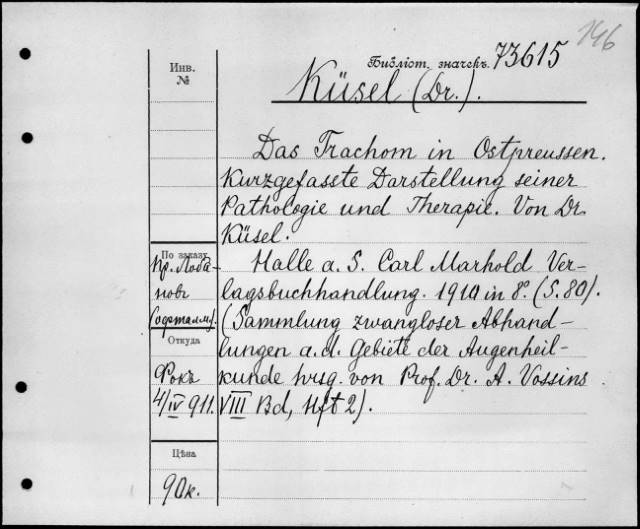 146
Библіот. значекъ. 73615
Инв.
№
Küsel (Dr.).
Das Trachom in Ostpreussen.
Kurzgefasste Darstellung seiner
Pathologie und Therapie. Von Dr.
Küsel.
Halle a. S. Carl Marhold Ver-
lagsbuchhandlung. 1910 in 8°. (S. 80).
(Sammlung zwangloser Abhand-
lungen a. d. Gebiete der Augenheil-
kunde hrsg. von Prof. Dr. A. Vossins
VIII Bd, Hft 2).
По заказу
Пр. Лоба-
новъ
(офталм.)
Откуда
Фокъ
4/IV 911.
Цѣна
90к.